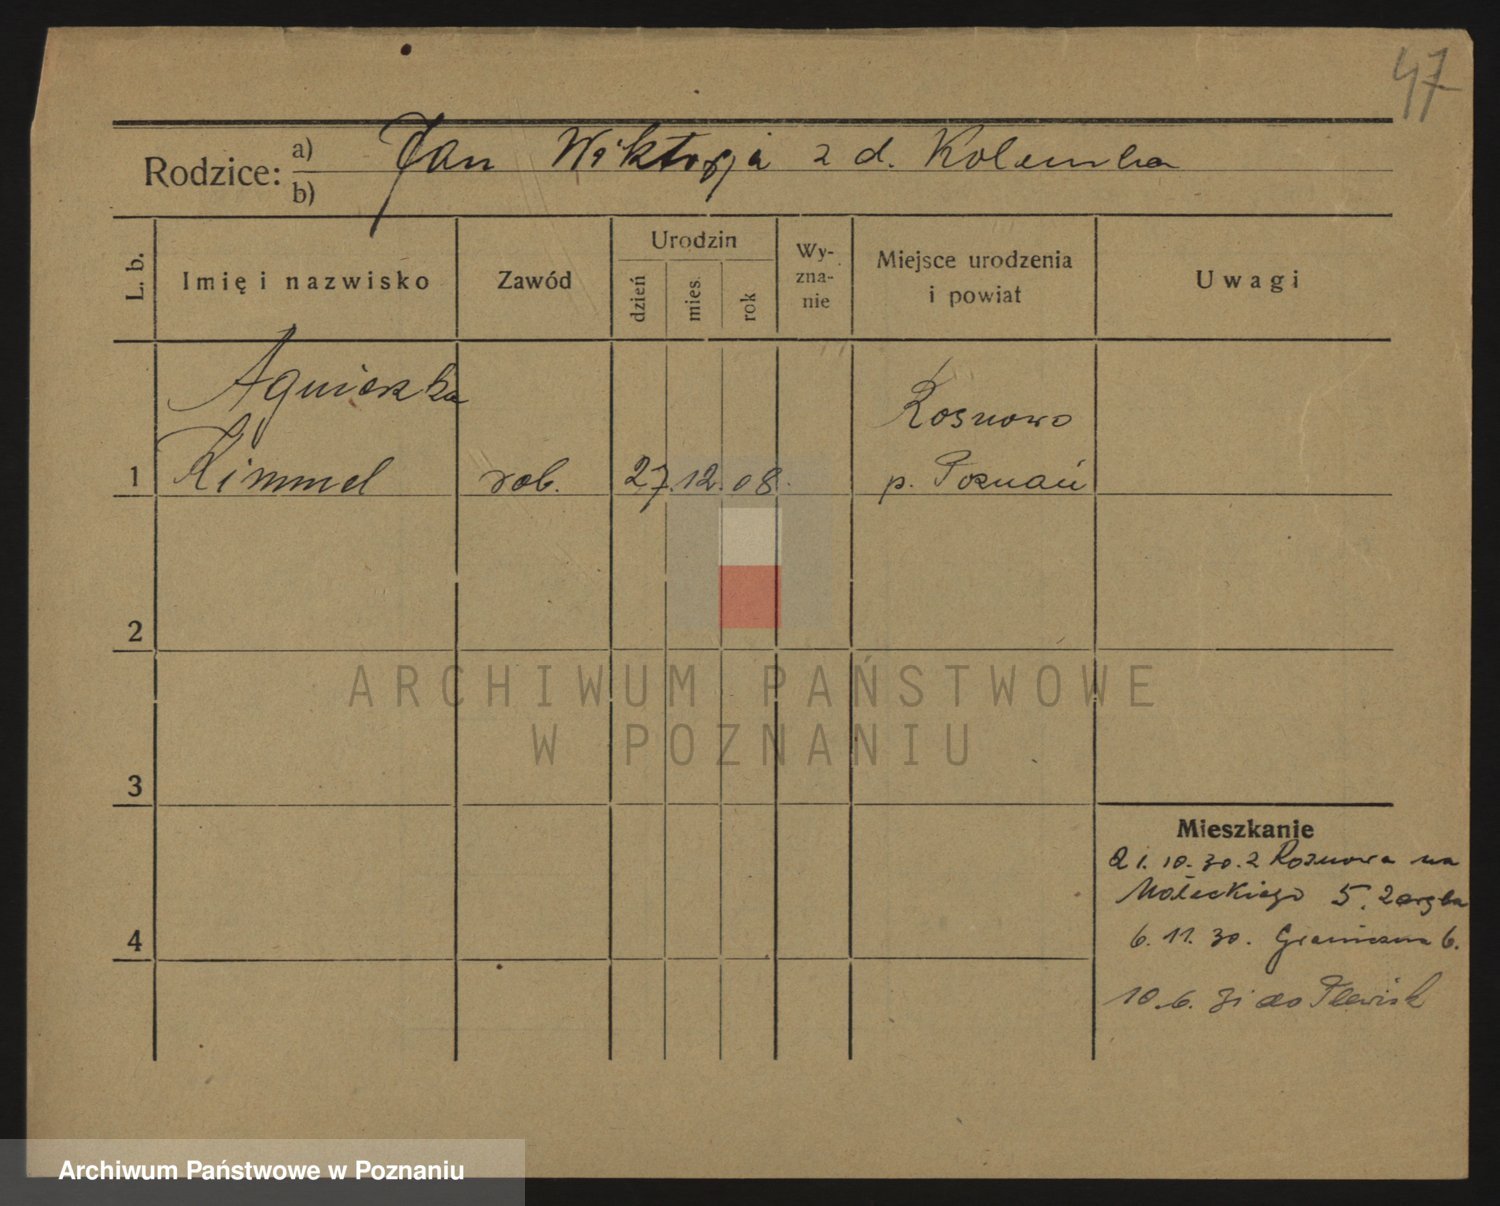 47
Rodzice: a) Jan Wiktorja z d. Kolemba
b)
L. b.
Imię i nazwisko
Zawód
Urodzin
dzień
mies.
rok
Wy-
zna-
nie
Miejsce urodzenia
i powiat
Uwagi
Agnieszka
Kimmel
1
rob.
27.12.08.
Rosnowo
p. Poznań
2
3
4
ARCHIWUM PAŃSTWOWE
W POZNANIU
Mieszkanie
1.10.30. z Rosnowa na
Małeckiego 5.
6.11.30. Graniczna 6.
10.6.31 do Plewisk
Archiwum Państwowe w Poznaniu